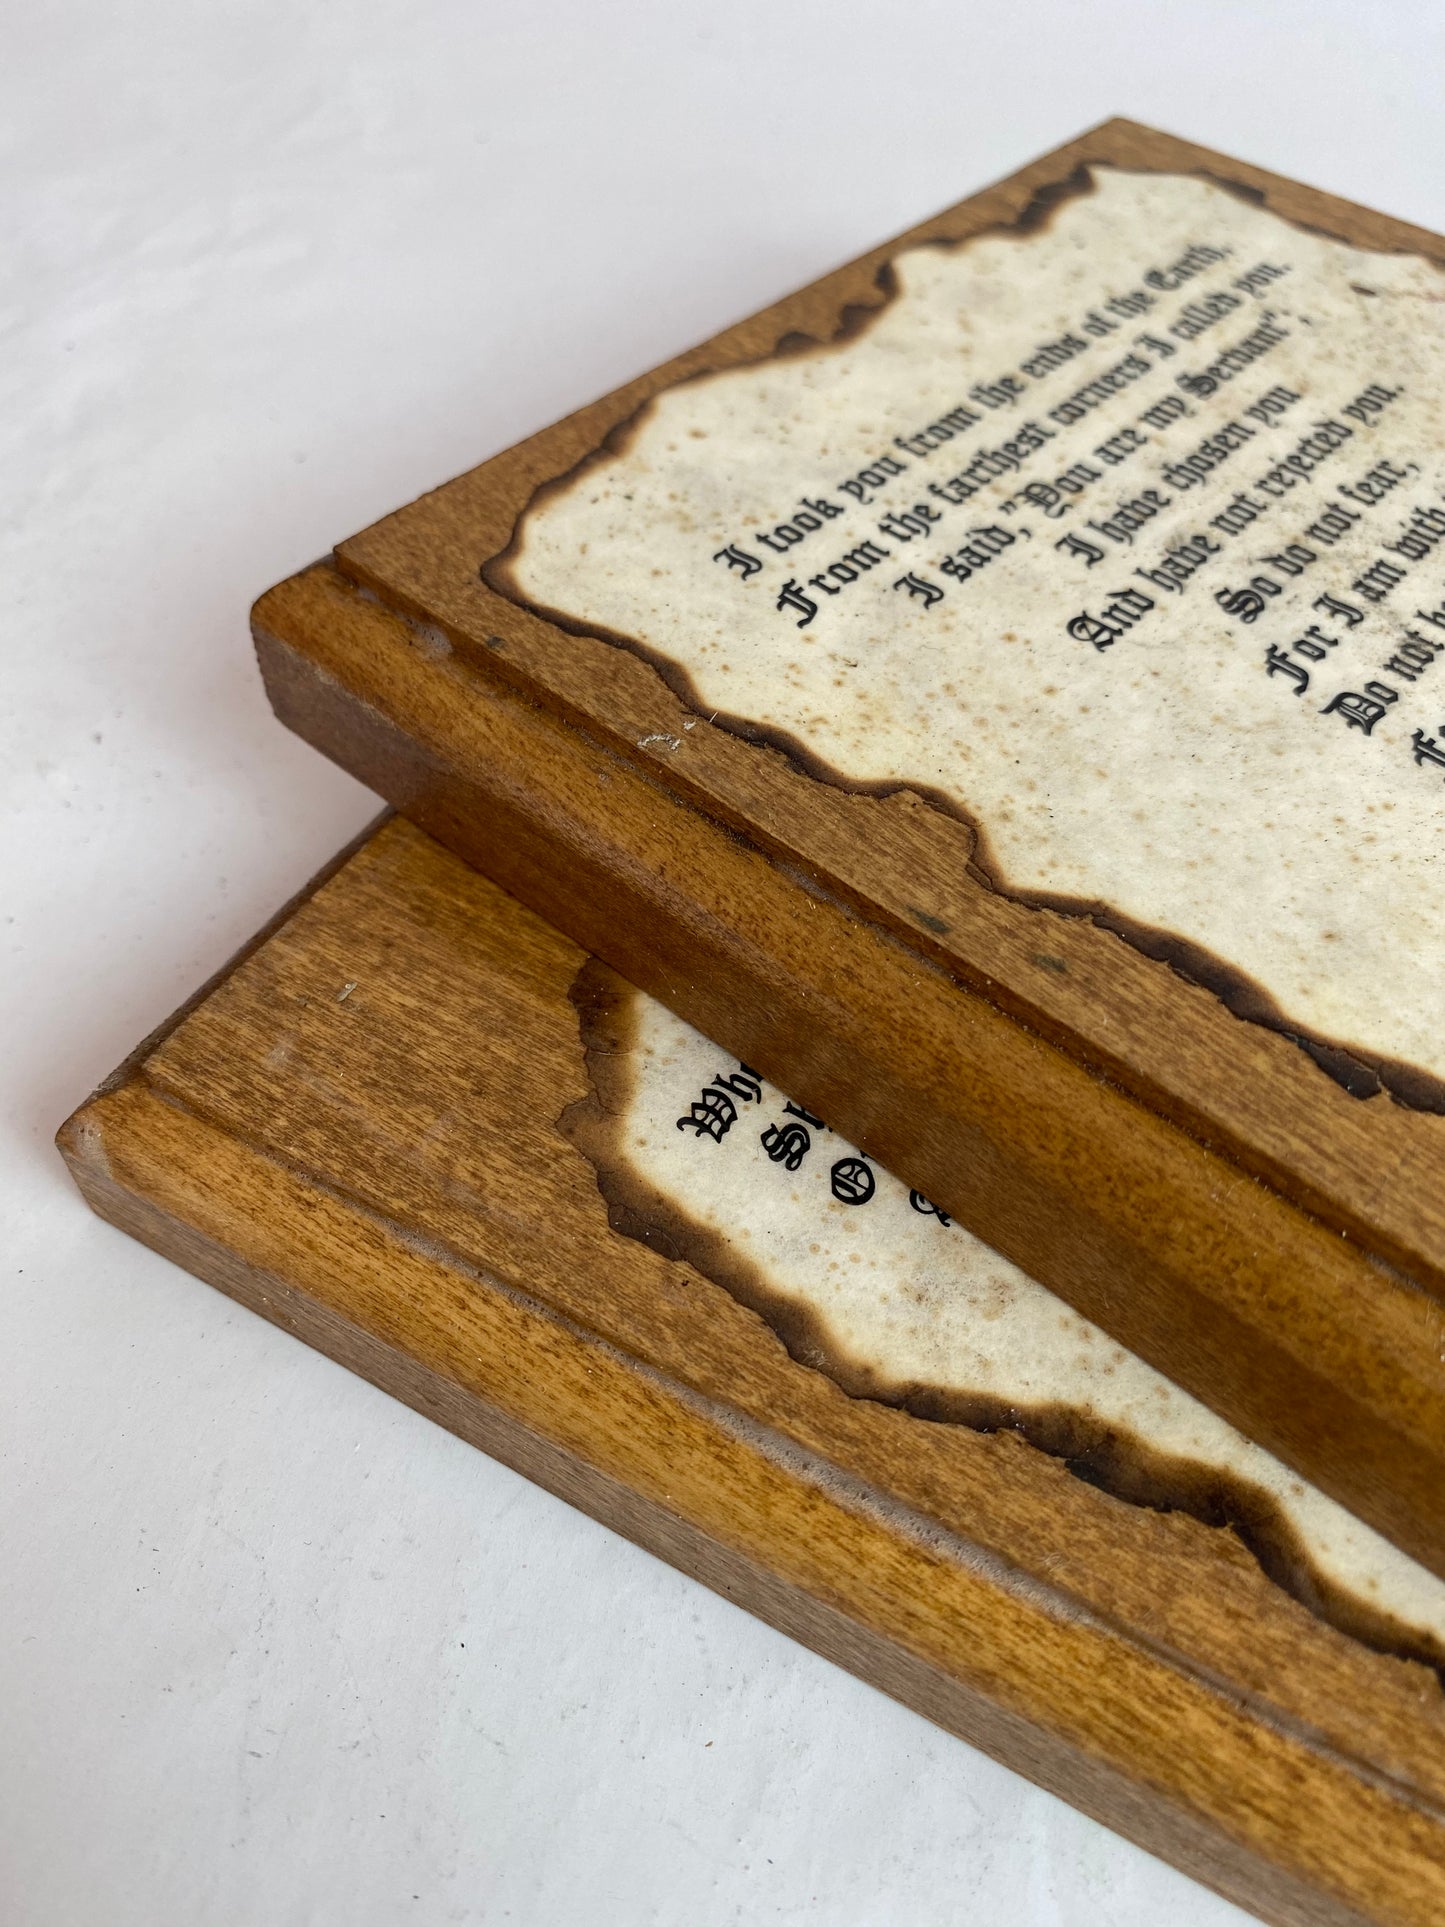 I took you from the ends of the Earth,
From the farthest corners I called you.
I said, "You are my Servant",
I have chosen you
And have not rejected you.
So do not fear,
For I am with
Do not